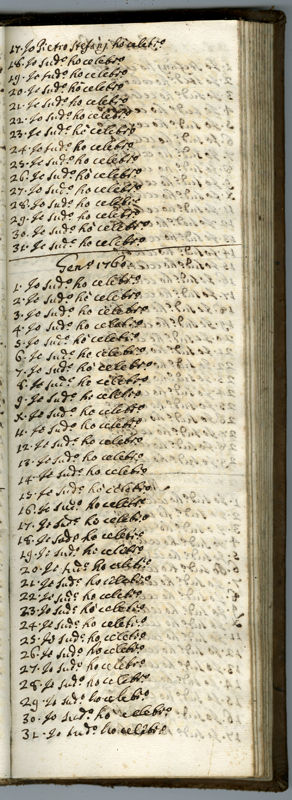 17. Io Pietro Stefanj ho celebro
18. Io sudo ho celebro
19. Io sudo ho celebro
20. Io sudo ho celebro
21. Io sudo ho celebro
22. Io sudo ho celebro
23. Io sudo ho celebro
24. Io sudo ho celebro
25. Io sudo ho celebro
26. Io sudo ho celebro
27. Io sudo ho celebro
28. Io sudo ho celebro
29. Io sudo ho celebro
30. Io sudo ho celebro
31. Io sudo ho celebro
Geno 1760
1. Io sudo ho celebro
2. Io sudo ho celebro
3. Io sudo ho celebro
4. Io sudo ho celebro
5. Io sudo ho celebro
6. Io sudo ho celebro
7. Io sudo ho celebro
8. Io sudo ho celebro
9. Io sudo ho celebro
X. Io sudo ho celebro
11. Io sudo ho celebro
12. Io sudo ho celebro
13. Io sudo ho celebro
14. Io sudo ho celebro
15. Io sudo ho celebro
16. Io sudo ho celebro
17. Io sudo ho celebro
18. Io sudo ho celebro
19. Io sudo ho celebro
20. Io sudo ho celebro
21. Io sudo ho celebro
22. Io sudo ho celebro
23. Io sudo ho celebro
24. Io sudo ho celebro
25. Io sudo ho celebro
26. Io sudo ho celebro
27. Io sudo ho celebro
28. Io sudo ho celebro
29. Io sudo ho celebro
30. Io sudo ho celebro
31. Io sudo ho celebro